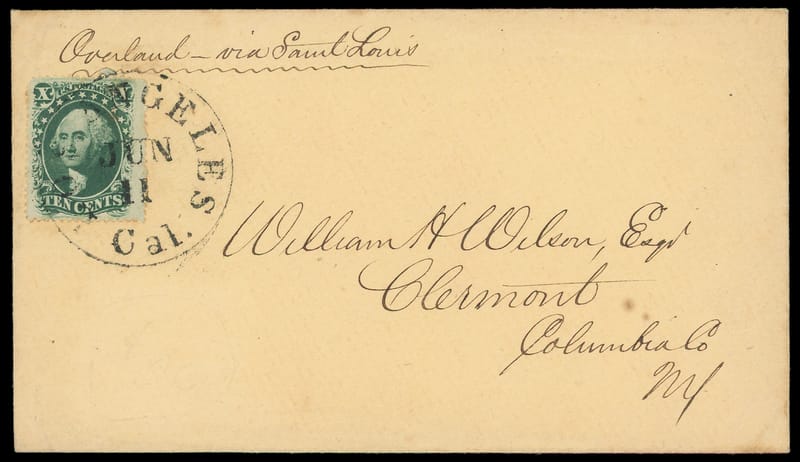 Overland – via Saint Louis
X U.S. POSTAGE
TEN CENTS
ANGELES
JUN
11
Cal.
William H Wilson, Esqr
Clermont
Columbia Co
NY